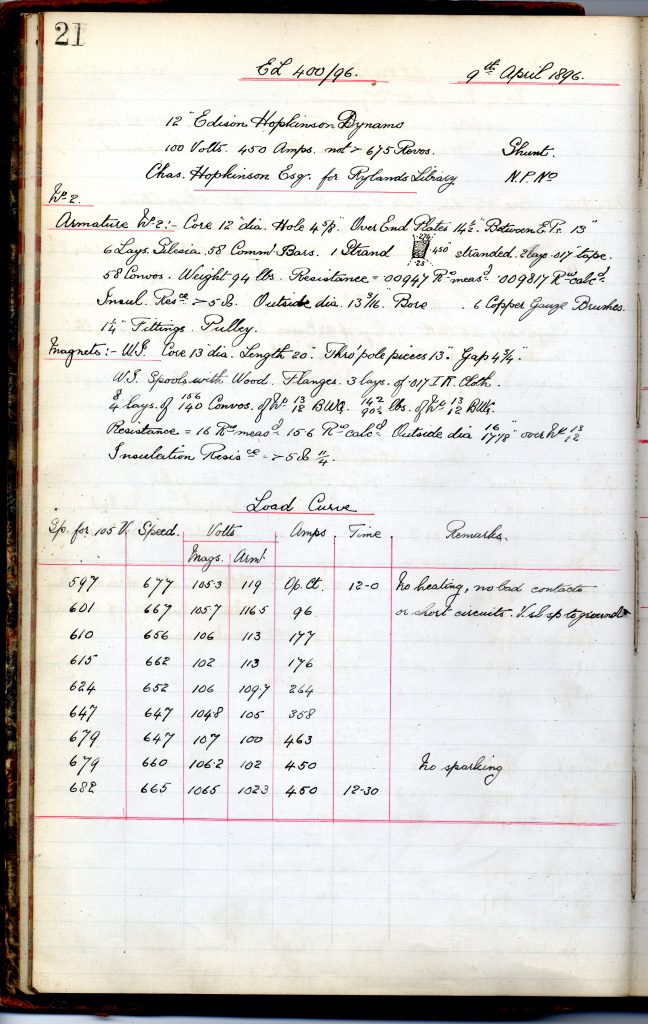 21
EL 400/96. 9th April 1896.
12" Edison Hopkinson Dynamo
100 Volts. 450 Amps. not > 675 Revos. Shunt.
Chas. Hopkinson Esq. for Rylands Library N.P. No
No 2.
Armature No 2:- Core 12" dia. Hole 4 5/8". Over End Plates 14 1/2". Between E.Ps. 13"
6 Lays. Silesia. 58 Comm. Bars. 1 Strand .450" stranded. 2 lays .017" tape.
58 Convos. Weight 94 lbs. Resistance = .00947 Rws measd. .009817 Rws calcd.
Insul. Resce > 5 Outside dia. 13 9/16". Bore . 6 Copper Gauze Brushes.
1 1/4" Fittings. Pulley.
Magnets:- W.I. Core 13" dia. Length 20". Thro' pole pieces 13". Gap 4 3/4".
W.I. Spools with Wood. Flanges. 3 lays. of .017 I.R. Cloth.
8 156 13 142 13
4 lays. of 140 Convos. of No 12 BWG. 90 1/2 lbs. of No 12 BWG.
Resistance = 16 Rws measd. 15.6 Rws calcd. Outside dia 16 17 7/8" over No 13 12
Insulation Resisce - > 5
Load Curve
Sp. for 105 V. Speed. Volts Amps. Time. Remarks.
Mags. Arm.
597 677 105.3 119 Op. Ct. 12-0 No heating, no bad contacts
601 667 105.7 116.5 96 or short circuits. V. sl. sp. to ground
610 656 106 113 177
615 662 102 113 176
624 652 106 109.7 264
647 647 104.8 105 358
679 647 107 100 463
679 660 106.2 102 450 No sparking
682 665 106.5 102.3 450 12-30